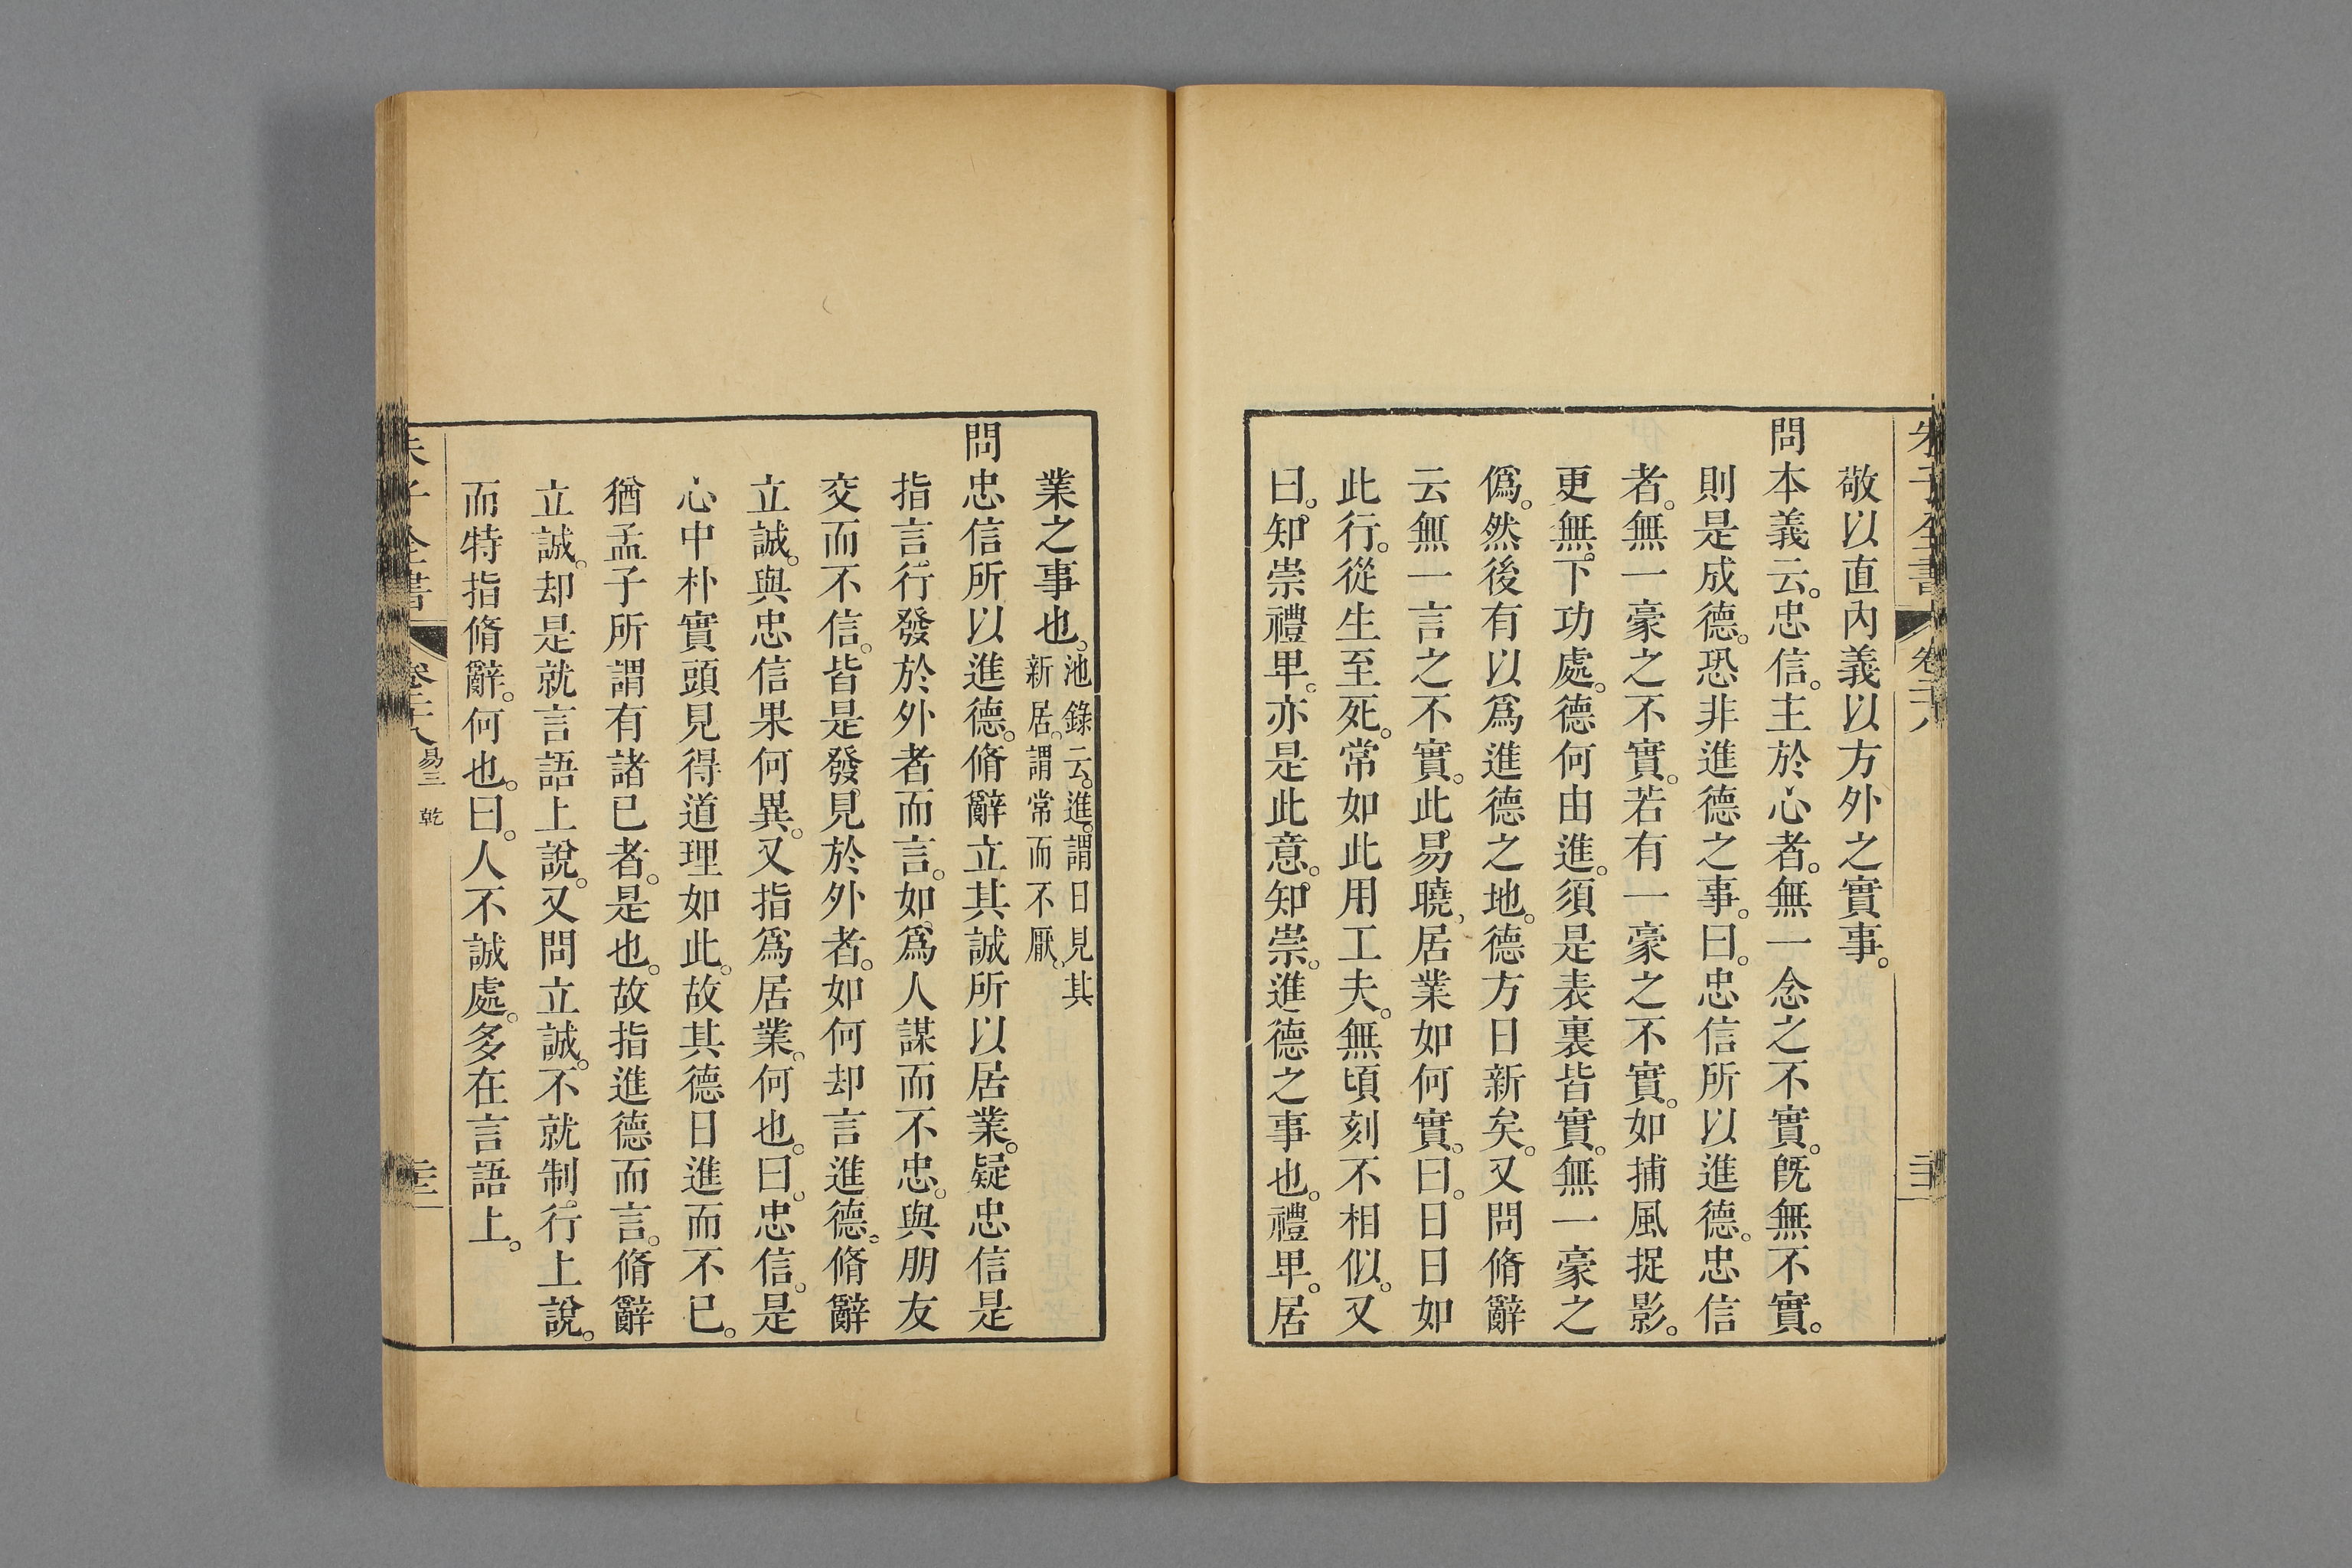 朱子全書 卷二十八
敬以直內義以方外之實事。
問本義云。忠信。主於心者。無一念之不實。旣無不實。
則是成德。恐非進德之事。曰。忠信所以進德。忠信
者。無一豪之不實。若有一豪之不實。如捕風捉影。
更無。下功處。德何由進。須是表裏皆實。無一豪之
僞。然後有以爲進德之地。德方日新矣。又問脩辭
云無一言之不實。此易曉、居業如何實。曰。日日如
此行。從生至死。常如此用工夫。無頃刻不相似。又
曰。知崇禮卑。亦是此意。知崇。進德之事也。禮卑。居
業之事也。池錄云。進。謂日見其
新居。謂常而不厭。
問忠信所以進德。脩辭立其誠所以居業。疑忠信是
指言。行發於外者而言。如爲人謀而不忠。與朋友
交而不信。皆是發見於外者。如何却言進德。脩辭
立誠。與忠信果何異。又指爲居業。何也。曰。忠信。是
心中朴實頭見得道理如此。故其德日進而不已。
猶孟子所謂有諸已者。是也。故指進德而言。脩辭
立誠。却是就言語上說。又問立誠。不就制行上說。
而特指脩辭。何也。曰。人不誠處。多在言語上。
朱子全書 卷二十八 易三 乾